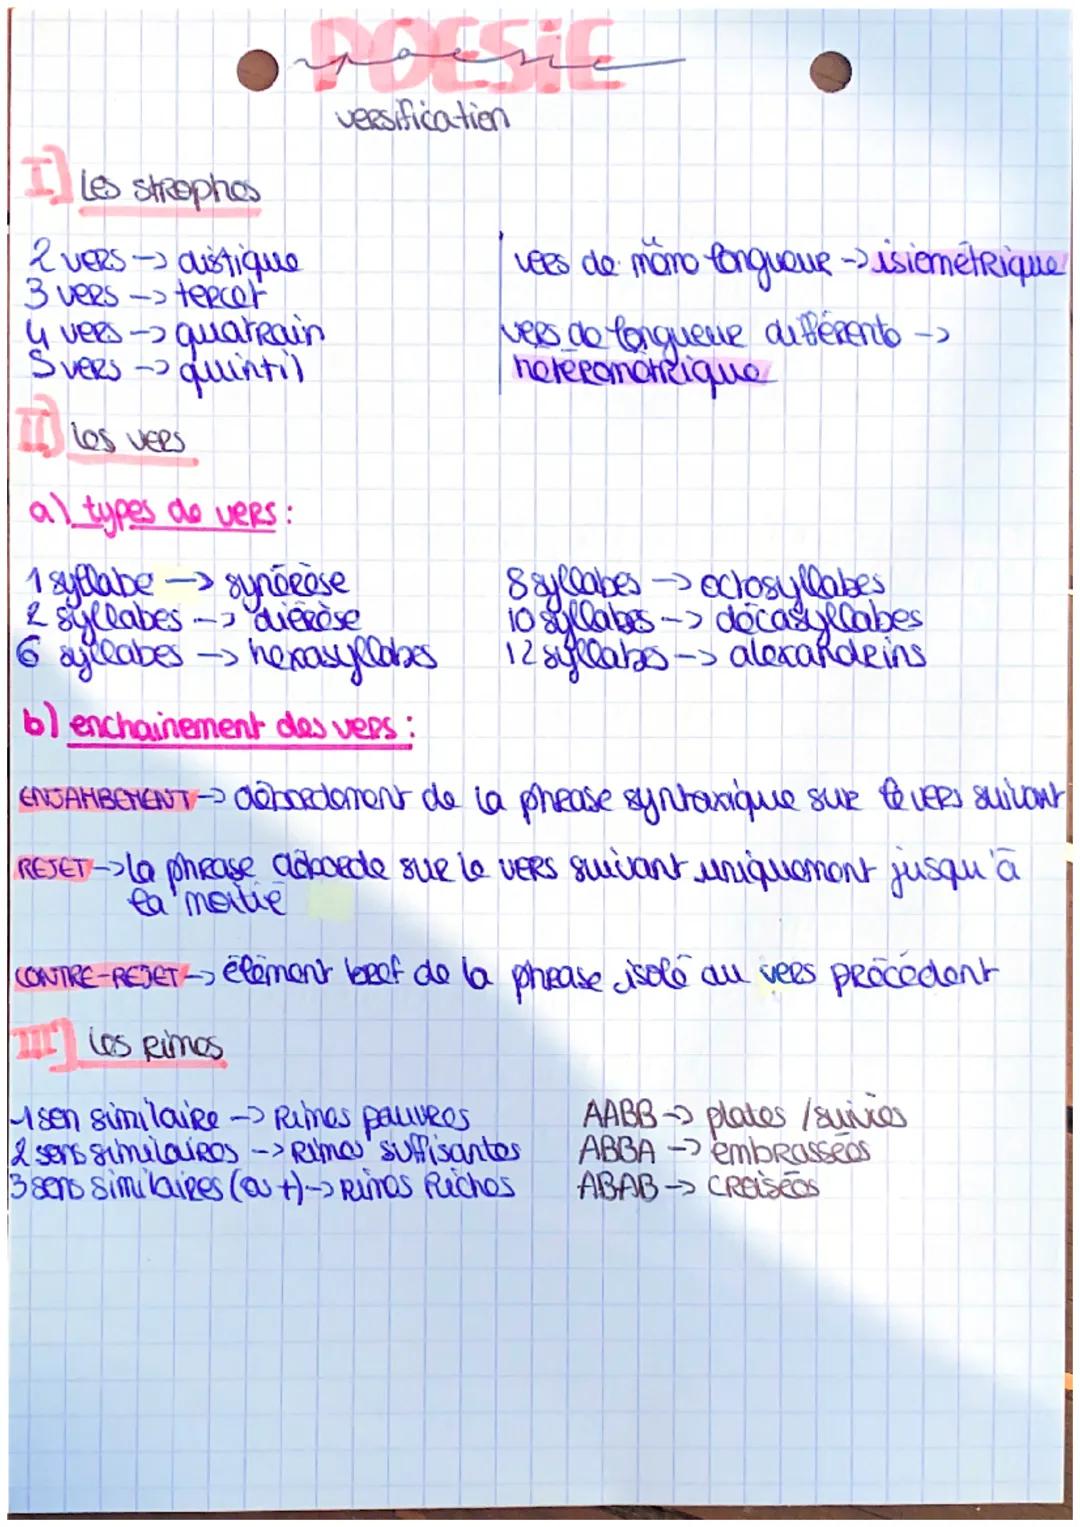 POESIE
poesie
versification
I] Les strophes
2 vers -> distique
3 vers -> tercet
4 vers -> quatrain
5 vers -> quintil
vers de même longueur -> isiométrique
vers de longueur différente ->
hétérométrique
II] Les vers
a) types de vers :
1 syllabe -> synérèse
2 syllabes -> diérèse
6 syllabes -> hexasyllabes
8 syllabes -> octosyllabes
10 syllabes -> décasyllabes
12 syllabes -> alexandrins
b) enchainement des vers :
ENJAMBEMENT -> débordement de la phrase syntaxique sur le vers suivant
REJET -> la phrase déborde sur le vers suivant uniquement jusqu'à
la moitié
CONTRE-REJET -> élément bref de la phrase isolé au vers précédent
III] Les rimes
1 son similaire -> Rimes pauvres
2 sons similaires -> Rimes suffisantes
3 sons similaires (ou +) -> Rimes Riches
AABB -> plates / suivies
ABBA -> embrassées
ABAB -> croisées